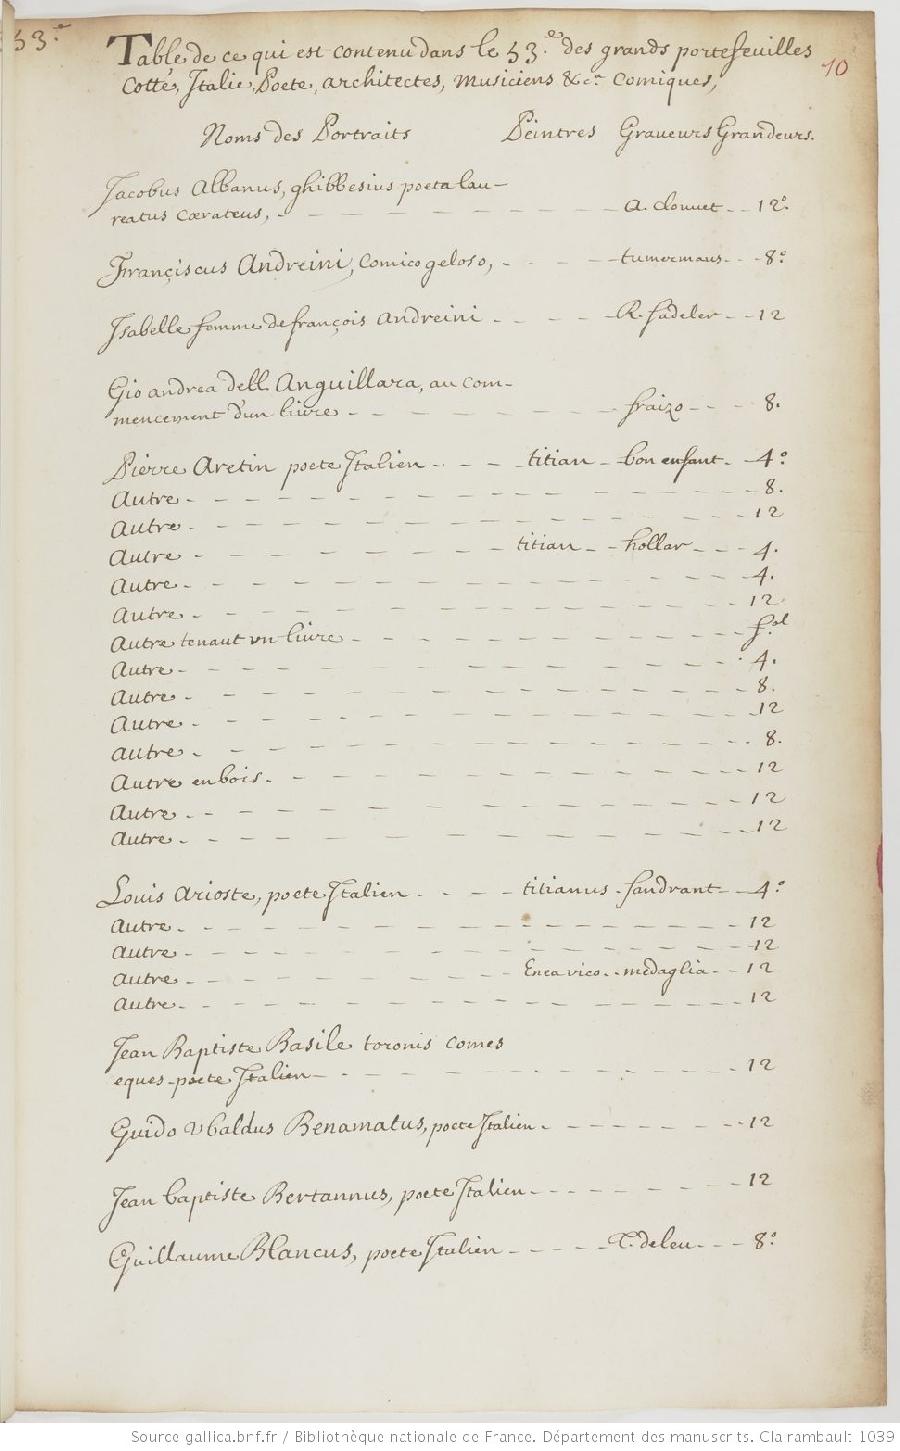 53.e
Table de ce qui est contenu dans le 53.e des grands portefeuilles
Cotté, Italie, Poete, architectes, musiciens &c.a Comiques,
10
Noms des Portraits Peintres Graveurs Grandeurs.
Jacobus Albanus, ghibbesius poeta lau-
reatus Cæsareus, - A. Clouuet - 12.o
Françiscus Andreini, Comico geloso, - tumermans - 8.o
Isabelle femme de françois Andreini - R. Sadeler - 12
Gio andrea dell Anguillara, au com-
mencement d'un livre - fraizo - 8.
Pierre Aretin poete Italien - titian - bon enfant - 4.o
Autre - 8.
Autre - 12
Autre - titian - hollar - 4.
Autre - 4.
Autre - 12
Autre tenant un livre - f.ol
Autre - 4.
Autre - 8.
Autre - 12
Autre - 8.
Autre en bois - 12
Autre - 12
Autre - 12
Louis Arioste, poete Italien - titianus - Sandrant - 4.o
Autre - 12
Autre - 12
Autre - Enea vico - medaglia - 12
Autre - 12
Jean Baptiste Basile toronis comes
eques - poete Italien - 12
Guido Ubaldus Benamatus, poete Italien - 12
Jean baptiste Bertannus, poete Italien - 12
Guillaume Blancus, poete Italien - T. deleu - 8.o
Source gallica.bnf.fr / Bibliothèque nationale de France. Département des manuscrits. Clairambault 1039